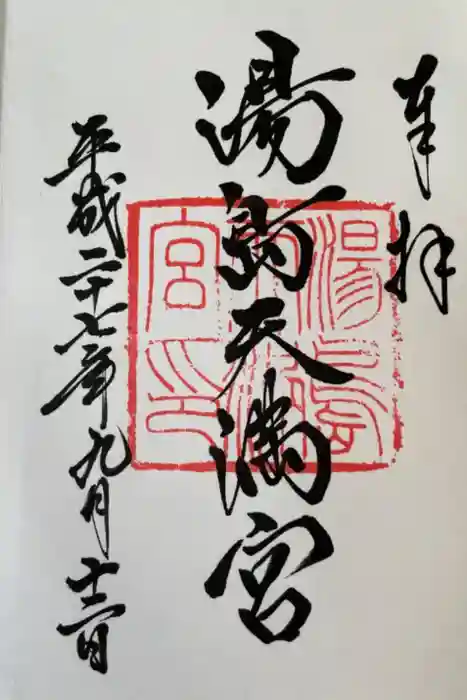 奉拝
湯島天満宮
平成二十七年九月十三日
湯島
天満
宮印